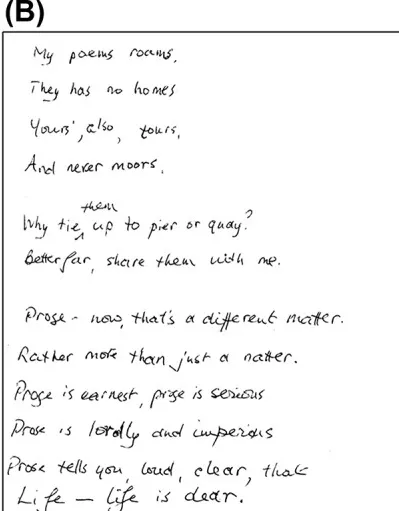 (B)
My poems roams,
They has no homes
Yours', also, tours,
And never moors.
Why tie them up to pier or quay?
Better far, share them with me.
Prose - now, that's a different matter.
Rather more than just a natter.
Prose is earnest, prose is serious
Prose is lordly and imperious
Prose tells you, loud, clear, that
Life — life is dear.